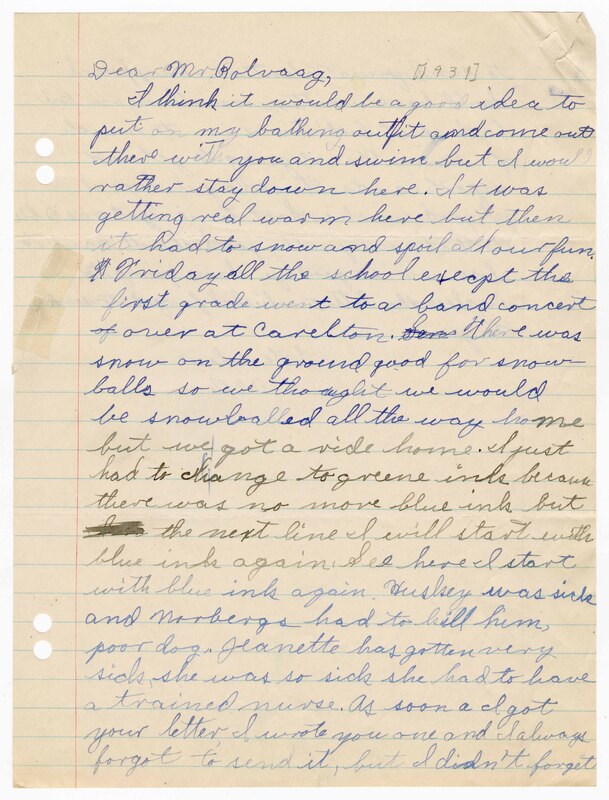 Dear Mr. Rolvaag, [1931]
I think it would be a good idea to
put on my bathing outfit and come out
there with you and swim but I would
rather stay down here. It was
getting real warm here but then
it had to snow and spoil all our fun.
Friday all the school execpt the
first grade went to a band concert
over at Carelton. There was
snow on the ground good for snow-
balls so we thought we would
be snowballed all the way home
but we got a ride home. I just
had to change to greene ink because
there was no more blue ink but
the next line I will start with
blue ink again. See here I start
with blue ink again. Huskey was sick
and Norbergs had to kill him,
poor dog. Jeanette has gotten very
sick, she was so sick she had to have
a trained nurse. As soon a I got
your letter I wrote you one and I always
forgot to send it, but I didn't forget